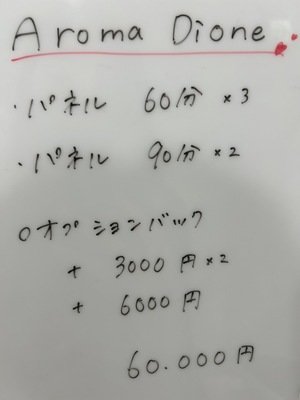 Aroma Dione.
・パネル 60分 ×3
・パネル 90分 ×2
○オプションバック
+ 3000円 ×2
+ 6000円
60.000円